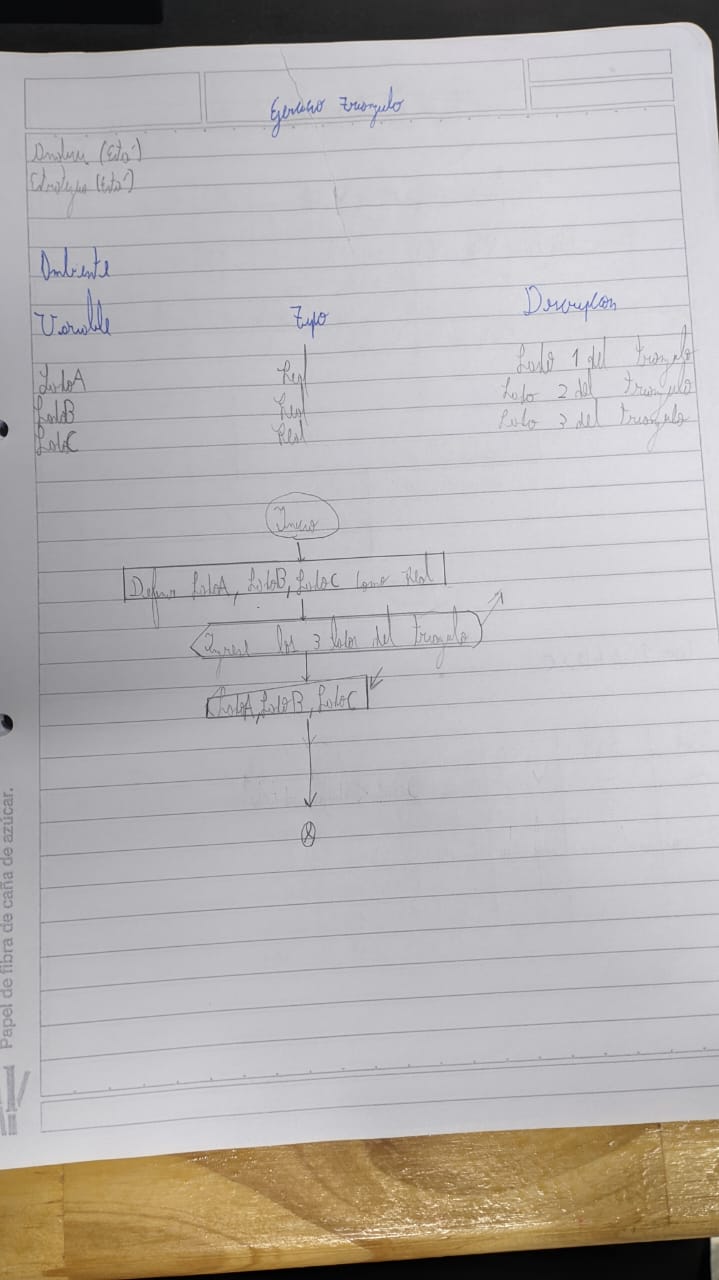 Ejercicio Triangulo
Analisis (Está)
Estrategia (Está)
Ambiente
Variable Tipo Descripcion
LadoA Real Lado 1 del triangulo
LadoB Real Lado 2 del triangulo
LadoC Real Lado 3 del triangulo
Inicio
Definir LadoA, LadoB, LadoC como Real
Ingrese los 3 lados del triangulo
LadoA, LadoB, LadoC
Papel de fibra de caña de azúcar.